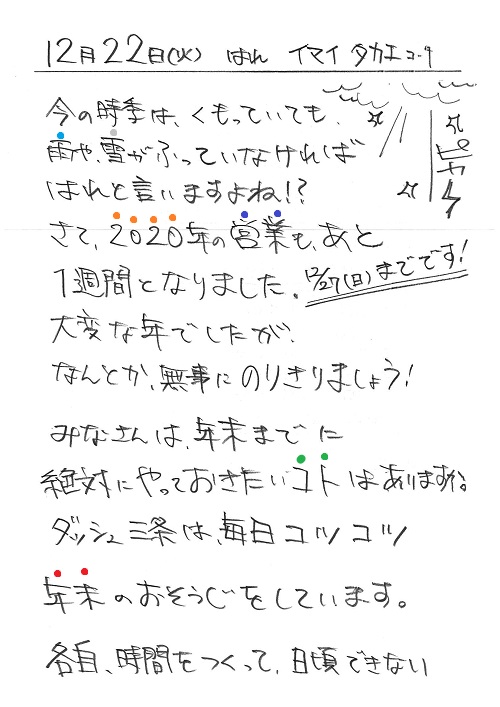 12月22日(火) はれ イマイ タカエ コーチ
今の時季は、くもっていても、
雨や、雪がふっていなければ
はれと言いますよね!?
ピカーッ
さて、2020年の営業も、あと
1週間となりました。 12/27(日)までです!
大変な年でしたが、
なんとか、無事にのりきりましょう!
みなさんは、年末までに
絶対にやっておきたいコトはありますか?
ダッシュ三条は、毎日コツコツ
年末のおそうじをしています。
各自、時間をつくって、日頃できない